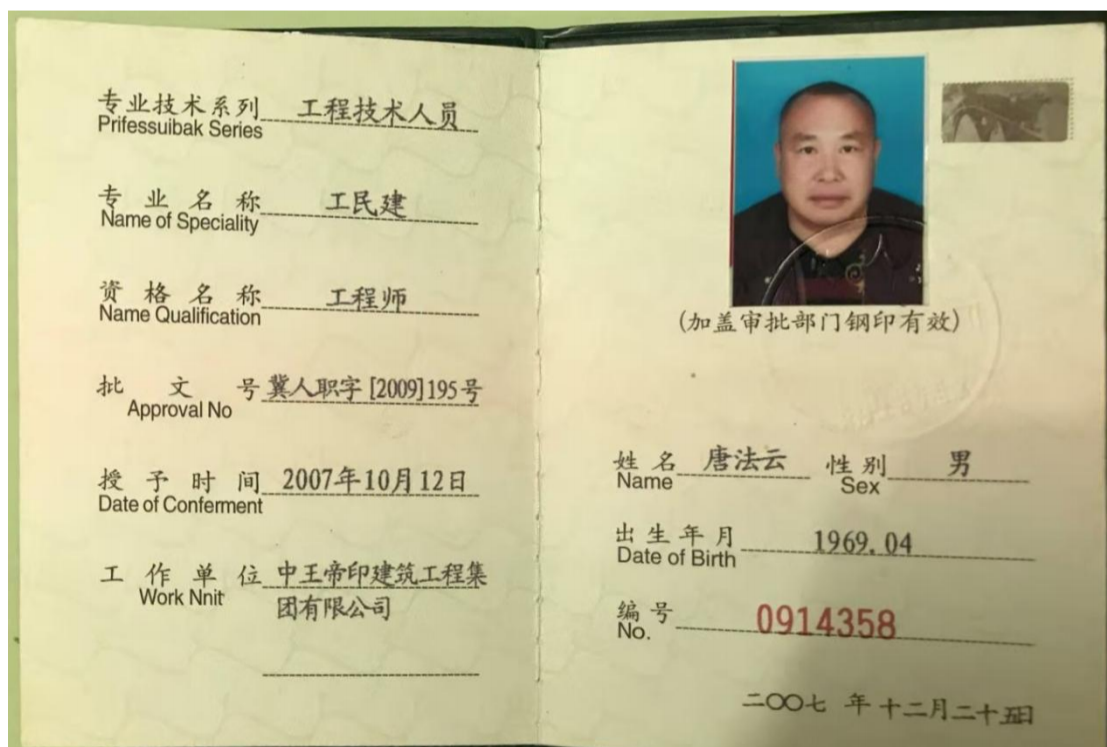 专业技术系列 工程技术人员
Prifessuibak Series
专业名称 工民建
Name of Speciality
资格名称 工程师
Name Qualification
批文号 冀人职字[2009]195号
Approval No
授予时间 2007年10月12日
Date of Conferment
工作单位 中王帝印建筑工程集
Work Nnit
团有限公司
(加盖审批部门钢印有效)
姓名 唐法云 性别 男
Name Sex
出生年月 1969.04
Date of Birth
编号 0914358
No.
二〇〇七年十二月二十五日